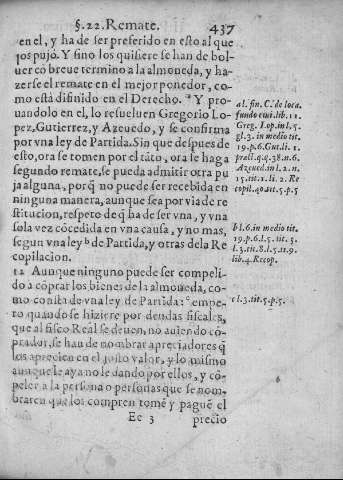 §.22. Remate. 437
en el, y ha de ser preferido en esto al que
los pujò. Y sino los quisiere se han de bol-
uer cõ breue termino a la almoneda, y ha-
zerse el remate en el mejor ponedor, co-
mo està difinido en el Derecho. ª Y pro-
uandolo en el, lo resueluen Gregorio Lo-
pez, Gutierrez, y Azeuedo, y se confirma
por vna ley de Partida. Sin que despues de
esto, ora se tomen por el tãto, ora se haga
segundo remate, se pueda admitir otra pu
ja alguna, porq̃ no puede ser recebida en
ninguna manera, aunque sea por via de re
stitucion, respeto de q̃ ha de ser vna, y vna
sola vez cõcedida en vna causa, y no mas,
segun vna ley ᵇ de Partida, y otras dela Re
copilacion.
12 Aunque ninguno puede ser compeli-
do a cõprar los bienes de la almoneda, co-
mo consta de vna ley de Partida: ᶜ empe-
ro quando se hiziere por deudas fiscales,
que al fisco Real se deuen, no auiendo cõ-
prador, se han de nombrar apreciadores q̃
los aprecien en el justo valor, y lo mismo
aunque le aya no le dando por ellos, y cõ-
peler a la persona o personas que se nom-
braren que los compren tomẽ y paguẽ el
Ee 3 precio
a l. fin. C. de loca.
fundo ciui. lib. 11.
Greg. Lop. in l. 5.
gl. 3. in medio tit.
19. p. 6. Gut. li. 1.
pract. q. q. 38. n. 6.
Azeued. in l. 2. n.
15. tit. 11. li. 2. Re
copil. 40. tit. 5. p. 5
b l. 6. in medio tit.
19. p. 6. l. 5. tit. 5.
l. 3. tit. 8. l. 5. tt. 9.
lib. 4. Recop.
c l. 3. tit. 5. p. 5.